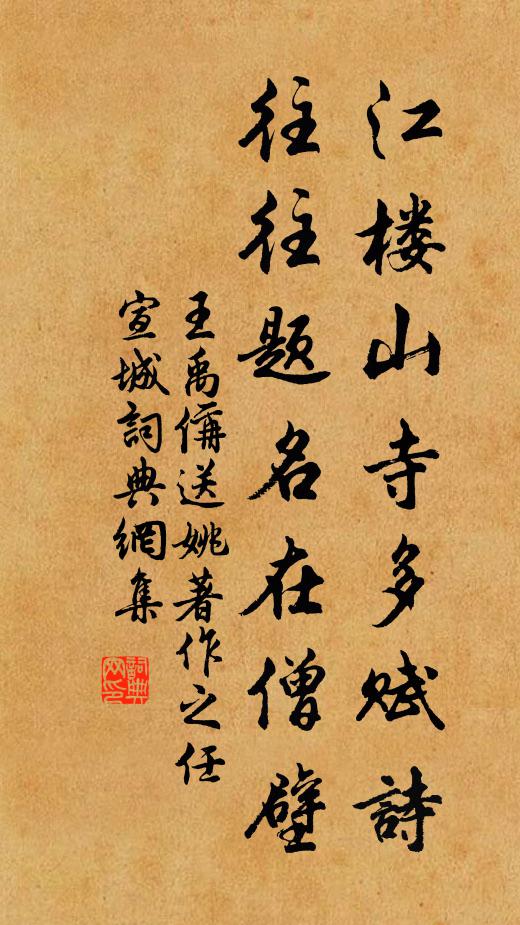 江楼山寺多赋詩
往往题名在僧壁
王禹偁送姚著作之任
宣城詞典網集
詞典网印